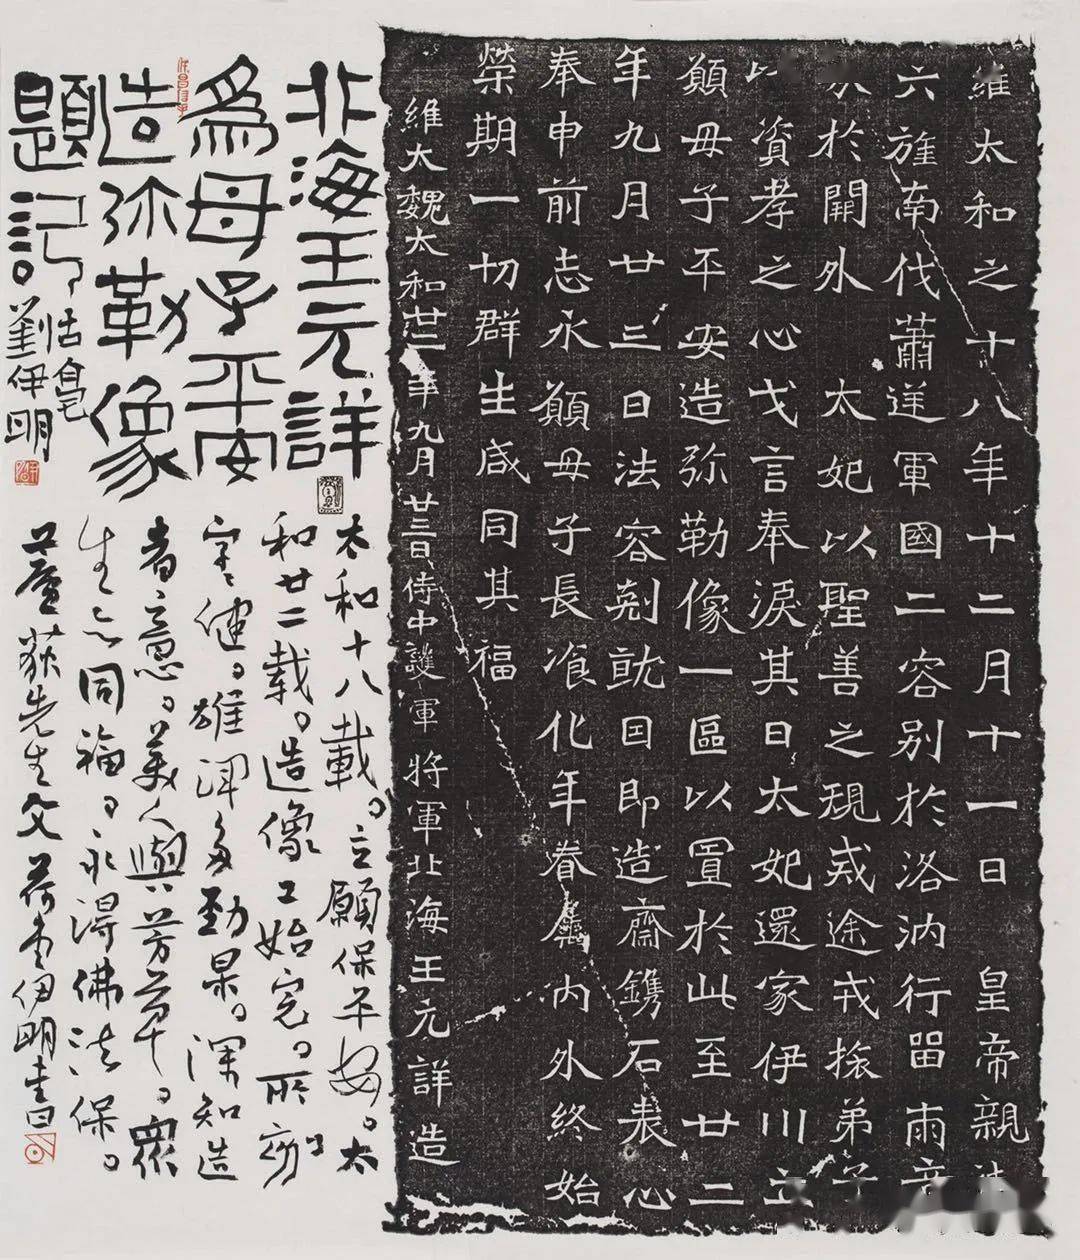 維太和之十八年十二月十一日皇帝親
六旌南伐蕭逆軍國二容別於洛汭行留兩
於開外太妃以聖善之規戒途戎捴弟子
以資孝之心戈言奉淚其日太妃還家伊川立
願母子平安造弥勒像一區以置於此至廿二
年九月廿三日法容剋就因即造齋鐫石表心
奉申前志永願母子長飡化年眷屬内外終始
榮期一切群生咸同其福
維大魏太和廿二年九月廿三日侍中護軍將軍北海王元詳造
北海王元詳
為母子平安
造弥勒像
題記
怙皂
劉伊明
太和十八載立願保平安太
和廿二載造像工始完所刻
字健雄渾多勁果深知造
者意美人與芳草衆
生亦同福永得佛法保
蘆荻先生文荷重伊明書